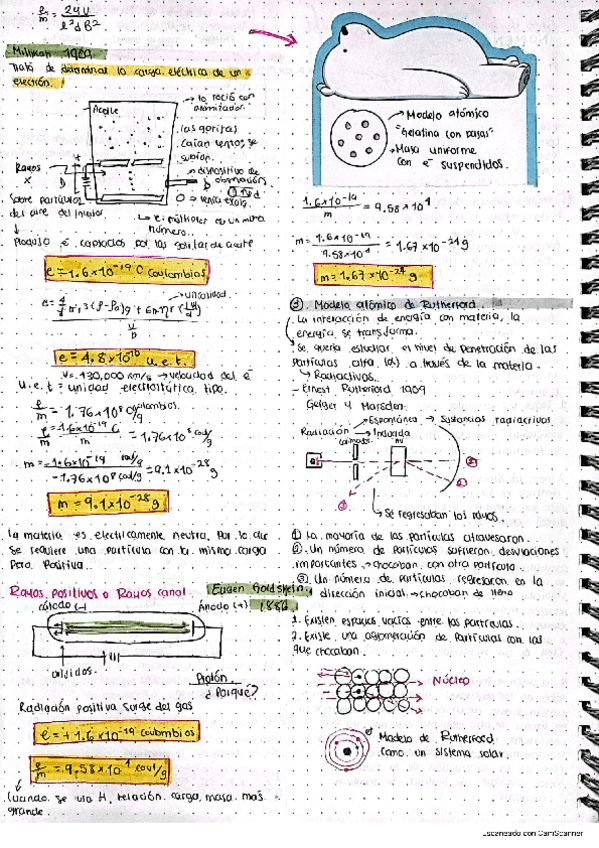 e/m = 24U / l²dB²
Millikan 1909.
Trató de determinar la carga eléctrica de un
electrón.
Aceite
→ lo roció con
atomizador.
las gotitas
caían lentos, se
subían.
Rayos
X
→ dispositivo de
observación
Sobre partículas
del aire del
número.
e = 1.6x10⁻¹⁹ C coulombios
viscosidad
e = 4.8x10¹⁰ u.e.t.
→ velocidad del e⁻
u.e.t = unidad electrostática tipo.
e/m = 1.76x10⁸ coulombios/g
e/m = 1.6x10⁻¹⁹ C / m = 1.76x10⁸ coul/g
m = -1.6x10⁻¹⁹ coul/g / -1.76x10⁸ coul/g = 9.1x10⁻²⁸ g
m = 9.1x10⁻²⁸ g
la materia es eléctricamente neutra, Por lo que
Se requiere una partícula con la misma carga
Pero Positiva.
Rayos positivos o Rayos canal
Eugen Goldstein
cátodo (-)
Ánodo (+)
188
Protón.
¿Porqué?
Radiación positiva surge del gas
e = +1.6x10⁻¹⁹ coulombios
e/m = 9.58x10⁴ coul/g
Cuando se usa H, relación carga, masa más
grande.
→ Modelo atómico
"Gelatina con pasas"
→ Masa uniforme
con e⁻ suspendidos.
1.6x10⁻¹⁹ / m = 9.58x10⁴
m = 1.6x10⁻¹⁹ / 9.58x10⁴ = 1.67x10⁻²⁴ g
m = 1.67x10⁻²⁴ g
③. Modelo atómico de Rutherford.
La interacción de energía con materia, la
energía se transforma.
Se quería estudiar el nivel de penetración de las
partículas alfa (α) a través de la materia.
↳ Radiactivos.
- Ernest Rutherford 1909
Geiger y Marsden.
Radiación
→ Espontánea → Sustancias radiactivas
→ Inducida
→ Se regresaban los rayos.
① La mayoría de las partículas atravesaron.
②. Un número de partículas sufrieron desviaciones
importantes → chocaban con otra partícula.
③. Un número de partículas regresaron en la
dirección inicial → chocaban de lleno
1. Existen espacios vacíos entre las partículas.
2. Existe una aglomeración de partículas con las
que chocaban.
NÚCLEO
Modelo de Rutherford
como un sistema solar.
Escaneado con CamScanner